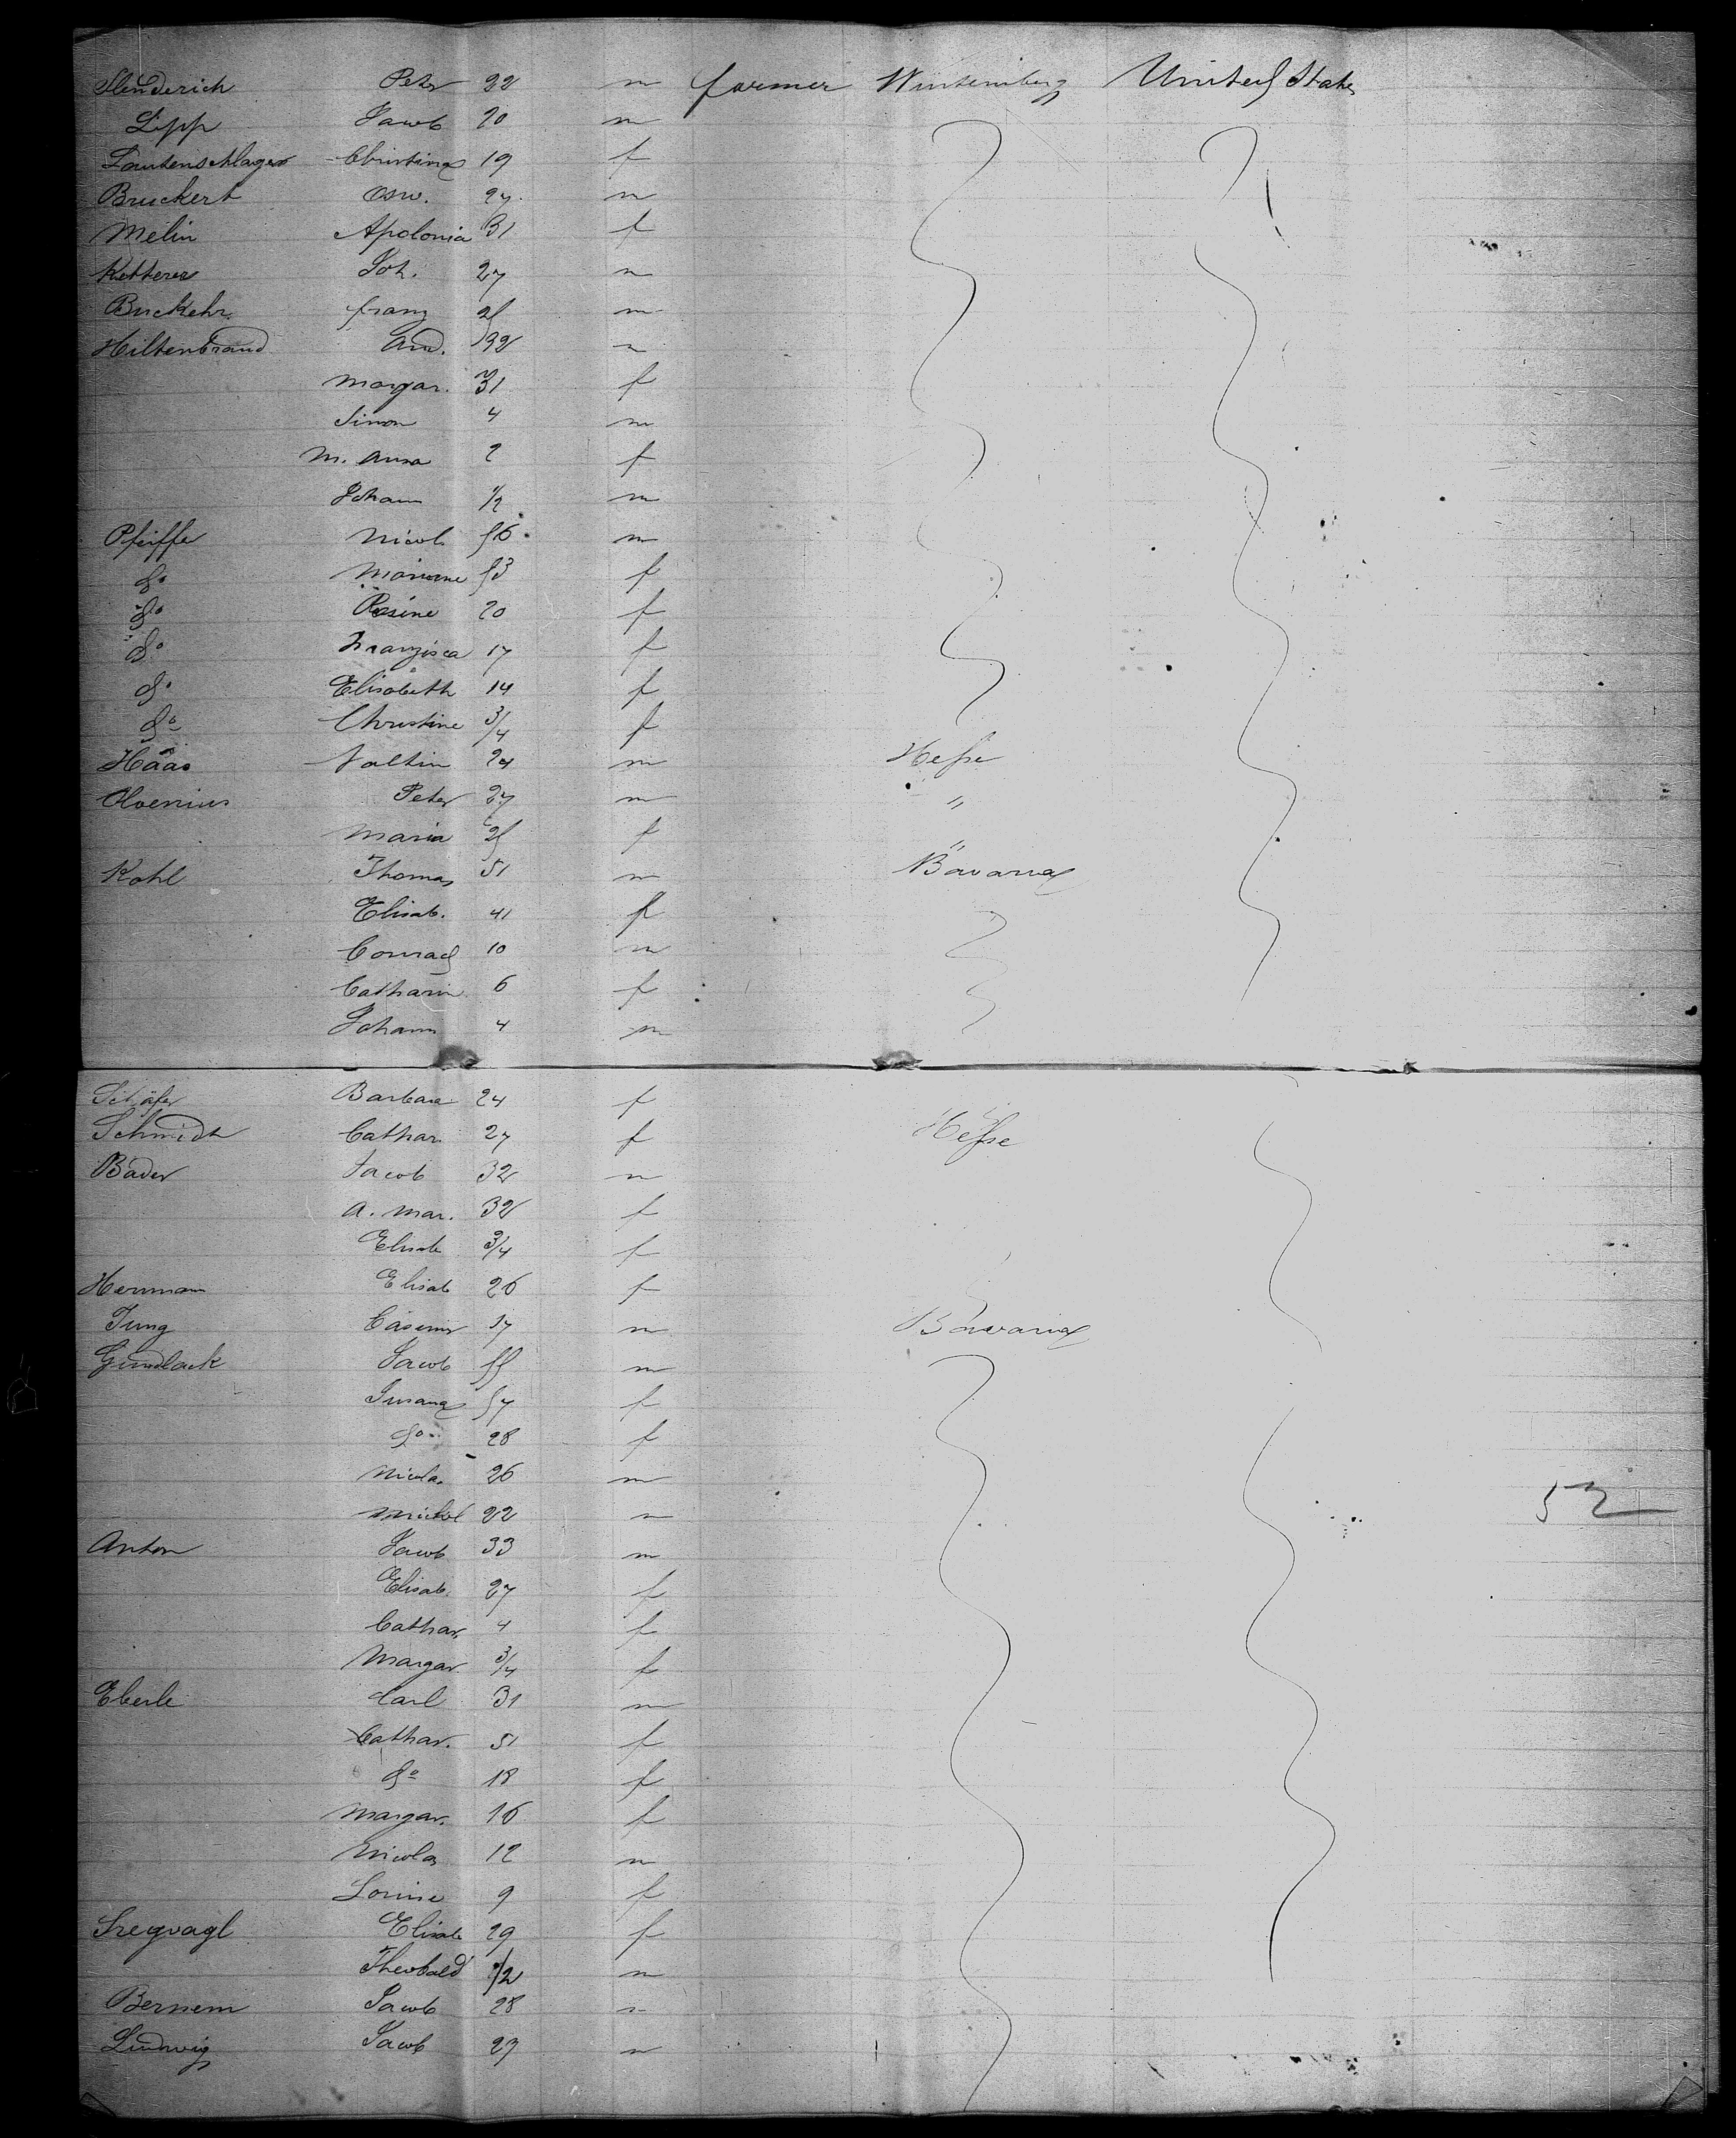 Slenderich Peter 22 m farmer Würtemberg United States
Lipp Jacob 20 m
Lautenschlager Christina 19 f
Bruckert Osw. 27 m
Melin Apolonia 31 f
Ketterer Joh. 27 m
Buckehr franz 25 m
Hiltenbrand And. 32 m
Margar. 31 f
Simon 4 m
M. Anna 2 f
Johann 1/2 m
Pfeiffer Nicol. 56 m
do Marianne 53 f
do Rosine 20 f
do Franzisca 17 f
do Elisabeth 14 f
do Christine 3/4 f
Haas Valtin 24 m Hesse
Peter 27 m "
Maria 25 f "
Kohl Thomas 51 m Bavaria
Elisab. 41 f
Conrad 10 m
Catharin 6 f
Johann 4 m
Schäfer Barbara 24 f "
Schmidt Cathar. 27 f Hesse
Bader Jacob 32 m
A. Mar. 32 f
Elisab 3/4 f
Herrmann Elisab 26 f
Jung Casemir 17 m Bavaria
Gundlack Jacob 55 m
Susana 57 f
do 28 f
Nicola. 26 m
Michel 22 m
52
Anton Jacob 33 m
Elisab. 27 f
Cathar. 4 f
Margar. 3/4 f
Eberle Carl 51 m
Cathar. 51 f
do 18 f
Margar. 16 f
Nicolas 12 m
Louise 9 f
Elisab 29 f
Theobald 1/2 m
Bernem Jacob 28 m
Ludwig Jacob 27 m